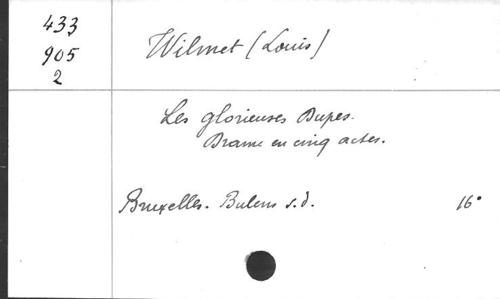 433
905
2
Wilmet (Louis)
Les glorieuses Dupes.
Drame en cinq actes.
Bruxelles. Bulens s.d. 16°